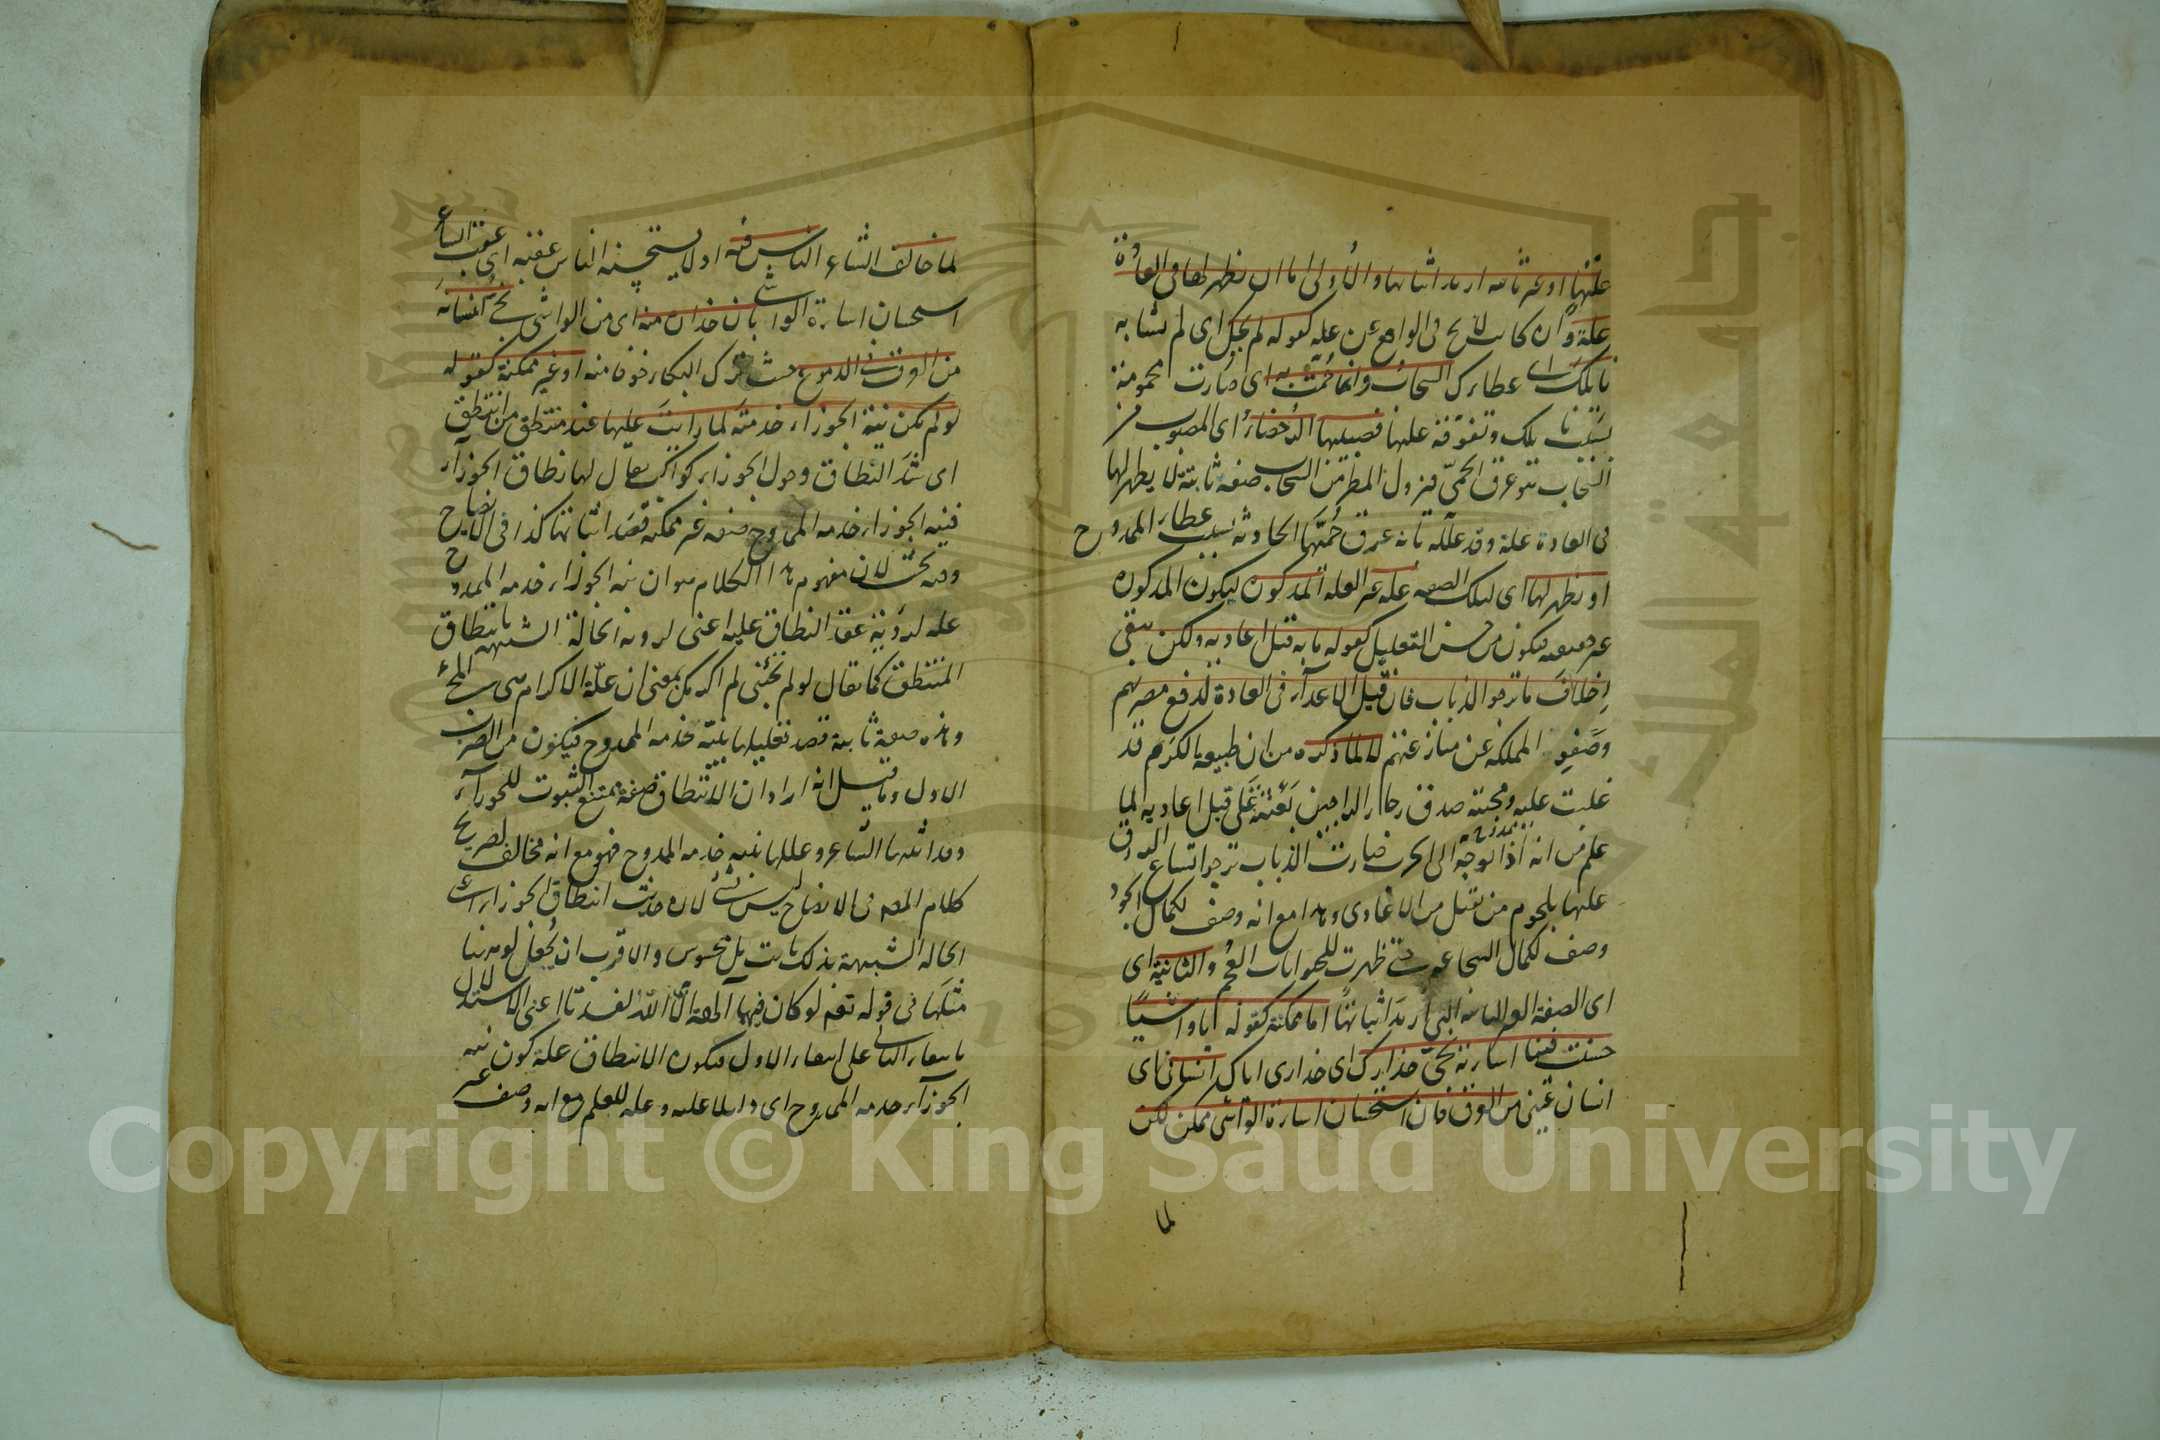 علتها او غير ثابتة اريد اثباتها والاولى اما ان لا يظهر لها فى العادة
علة وان كانت لا تخ فى الواقع عن علة كقوله لم يحك اى لم يشابه
نائلك اى عطاءك السحاب وانما حمت به اى صارت محمومة
بسبب نائلك وتفوقه عليها فصبيبها الرحضاء اى المصبوب من
السحاب هو عرق الحمى فنزول المطر من السحاب صفة ثابتة لا يظهر لها
فى العادة علة وقد علله بانه عرق حماها الحادثة بسبب عطاء الممدوح
او يظهر لها اى لتلك الصفة علة غير العلة المذكورة ليكون المذكورة
غير حقيقة فيكون من حسن التعليل كقوله ما به قتل اعاديه ولكن يتقى
اخلاف ما ترجو الذئاب فان قتل الاعداء فى العادة لدفع مضرتهم
وصفو المملكة عن منازعتهم لا لما ذكره من ان طبيعة الكرم قد
غلبت عليه ومحبته صدق رجاء الراجين بعثته على قتل اعاديه لما
علم من انه اذا توجه الى الحرب صارت الذئاب ترجوا اتساع الرزق
عليها بلحوم من يقتل من الاعادى وهذا مع انه وصف لكمال الجود
وصف لكمال الشجاعة حتى ظهرت للحيوانات العجم والثانية اى
اى الصفة الغير الثابتة التى اريد اثباتها اما ممكنة كقوله يا واشيا
حسنت فينا اساءته نجى حذارك اى حذارى اياك انسانى اى
انسان عينى من الغرق فان استحسان اساءة الواشى ممكن لكن
لما
لما خالف الشاعر الناس فيه اذ لا يستحسنه الناس عقبه اى عقب الشاعر
استحسان اساءة الواشى بان حذاره منه اى من الواشى نجى انسانه
من الغرق فى الدموع حيث ترك البكاء خوفا منه او غير ممكنة كقوله
لو لم تكن نية الجوزاء خدمته لما رايت عليها عقد منتطق من انتطق
اى شد النطاق وحول الجوزاء كواكب يقال لها نطاق الجوزاء
فنية الجوزاء خدمة الممدوح صفة غير ممكنة قصد اثباتها كذا فى الايضاح
وفيه بحث لان مفهوم هذا الكلام هو ان نية الجوزاء خدمة الممدوح
علة لرؤية عقد النطاق عليه اعنى لرؤية الحالة الشبيهة بانتطاق
المنتطق كما يقال لو لم تجئنى لم اكرمك بمعنى ان علة الاكرام هى المجئ
وهذه صفة ثابتة قصد تعليلها بنية خدمة الممدوح فيكون من الضرب
الاول وما قيل انه اراد ان الانتطاق صفة ممتنع الثبوت للجوزاء
وقد اثبتها الشاعر وعللها بنية خدمة الممدوح فهو مع انه مخالف لصريح
كلام المص فى الايضاح ليس بشئ لان حديث انتطاق الجوزاء اى
الحالة الشبيهة بذلك ثابت بل محسوس والاقرب ان يجعل لو ههنا
مثلها فى قوله تعم لو كان فيهما آلهة الا الله لفسدتا اعنى الاستدلال
بانتفاء الثانى على انتفاء الاول فيكون الانتطاق علة كون نية
الجوزاء خدمة الممدوح اى دليلا عليه وعلة للعلم مع انه وصف غير